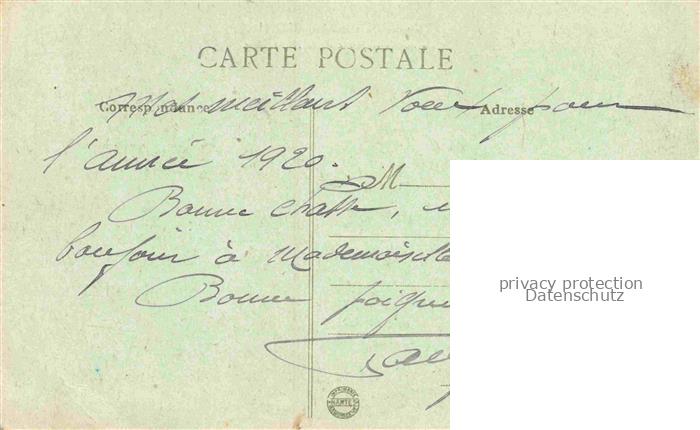 CARTE POSTALE
Correspondance
Adresse
Mes meilleurs Vœux pour
l'année 1920.
M
Bonne chasse,
bonjour à Mademoiselle
Bonne
privacy protection
Datenschutz